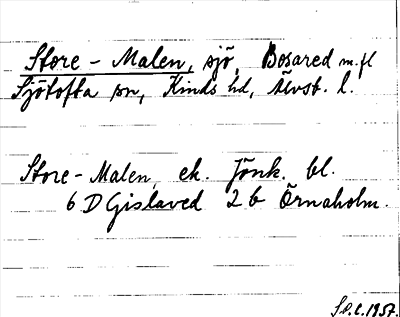 Store-Malen, sjö, Bosared m.fl
Sjötofta sn, Kinds hd, Älvsb. l.
Store-Malen, ek. Jönk. bl.
6 D Gislaved 2 b Örnaholm.
1957.